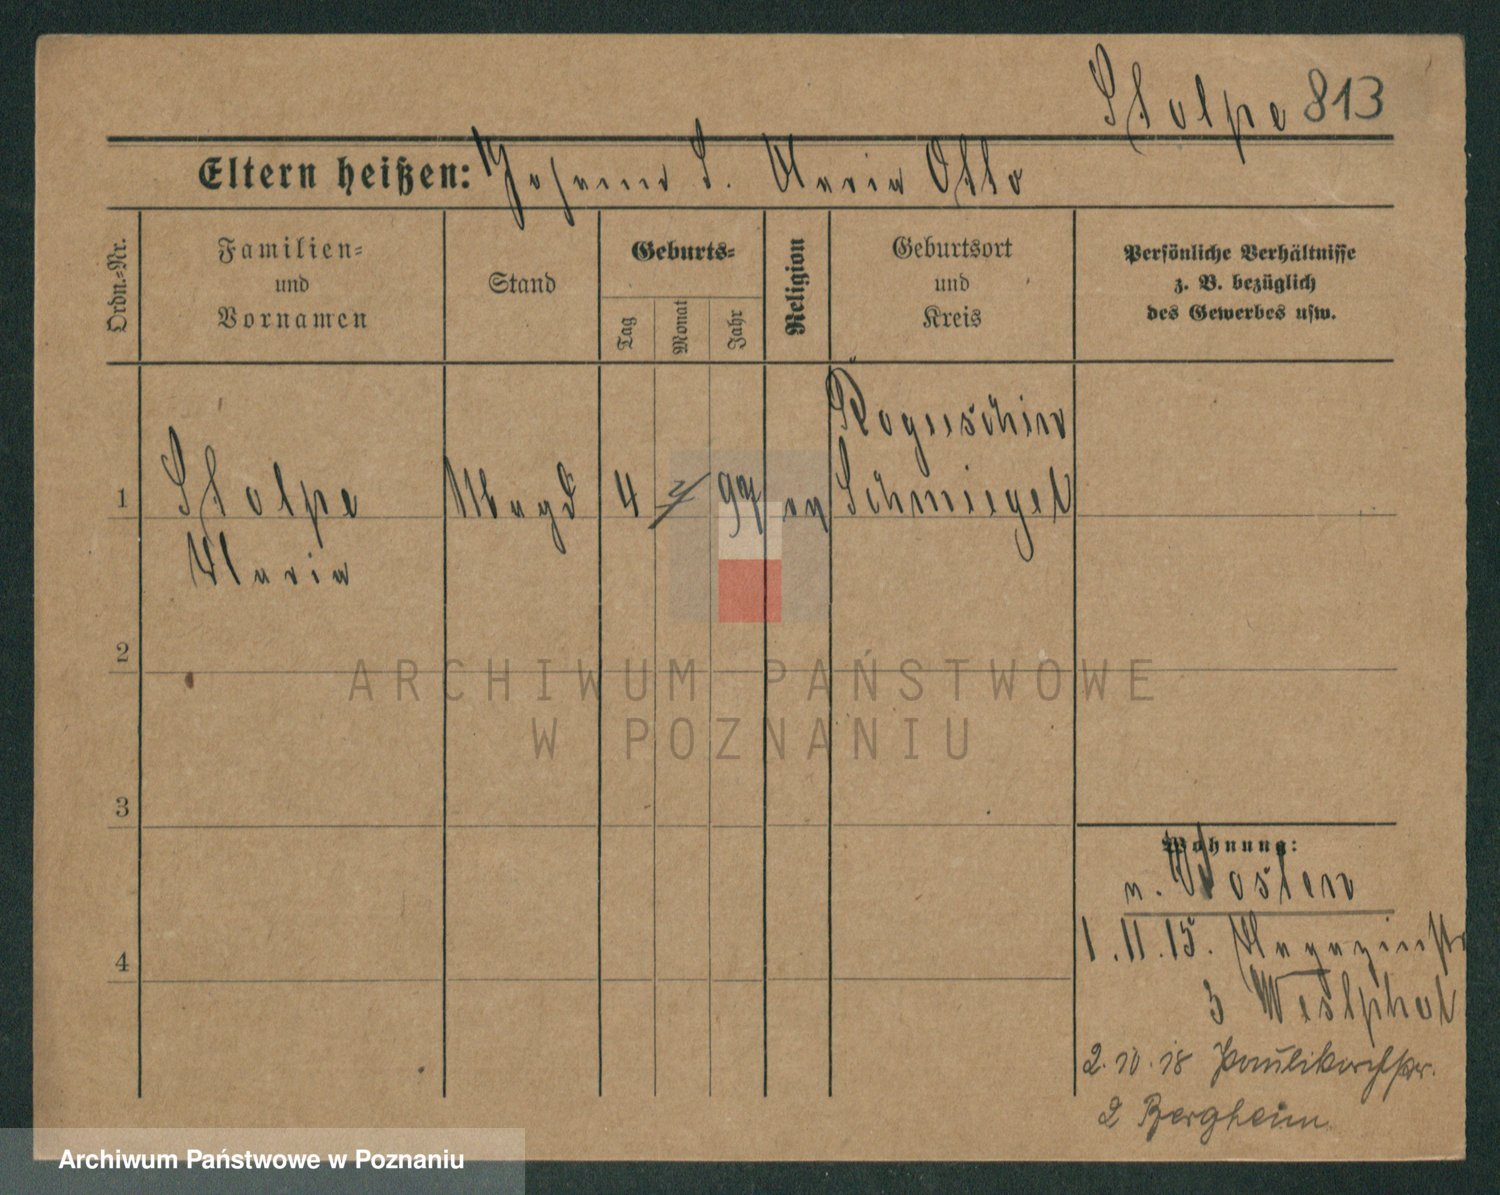 Stolpe 813
Eltern heißen: Johann S. Maria Otto
Ordn.-Nr.
Familien-
und
Vornamen
Stand
Geburts-
Tag
Monat
Jahr
Religion
Geburtsort
und
Kreis
Persönliche Verhältnisse
z. B. bezüglich
des Gewerbes usw.
1 Stolpe Magd 4 7 97 ev Schmiegel
Maria
2
3
4
Wohnung:
n. Posten
1.11.15. Magazinstr
3 Westphal
2.10.18 Paulikirchstr.
2 Bergheim
ARCHIWUM PAŃSTWOWE
W POZNANIU
Archiwum Państwowe w Poznaniu